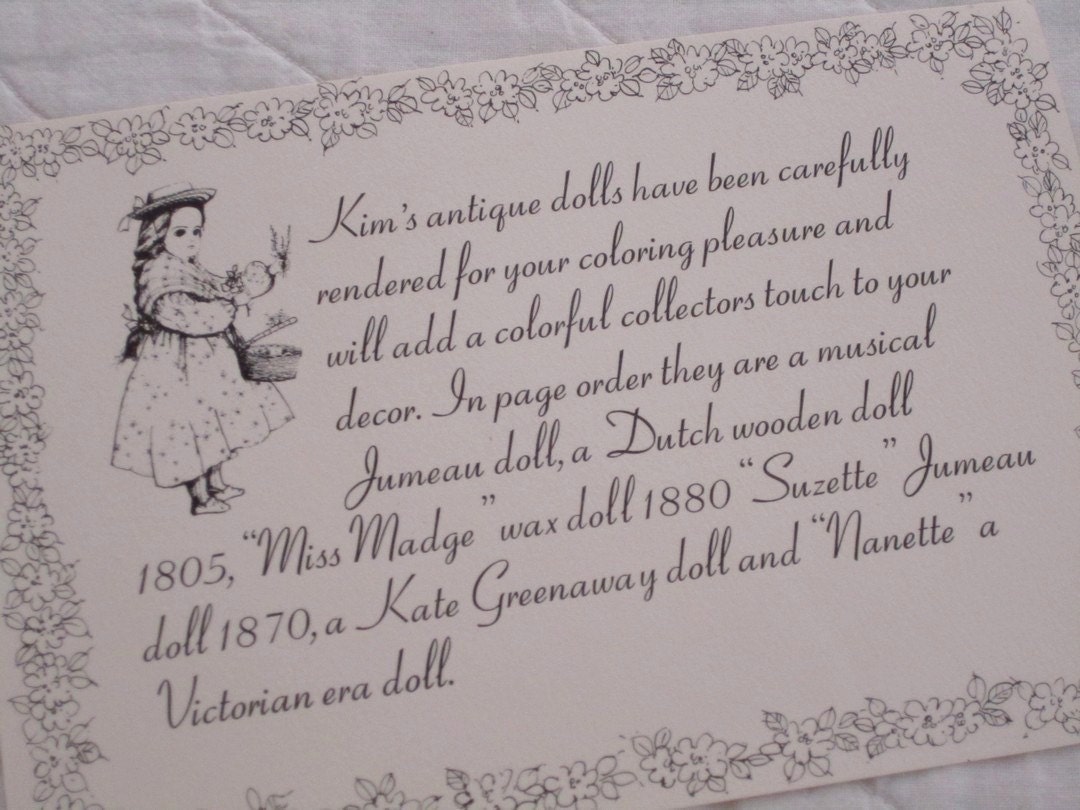 Kim's antique dolls have been carefully
rendered for your coloring pleasure and
will add a colorful collectors touch to your
decor. In page order they are a musical
Jumeau doll, a Dutch wooden doll
1805, "Miss Madge" wax doll 1880 "Suzette" Jumeau
doll 1870, a Kate Greenaway doll and "Nanette" a
Victorian era doll.